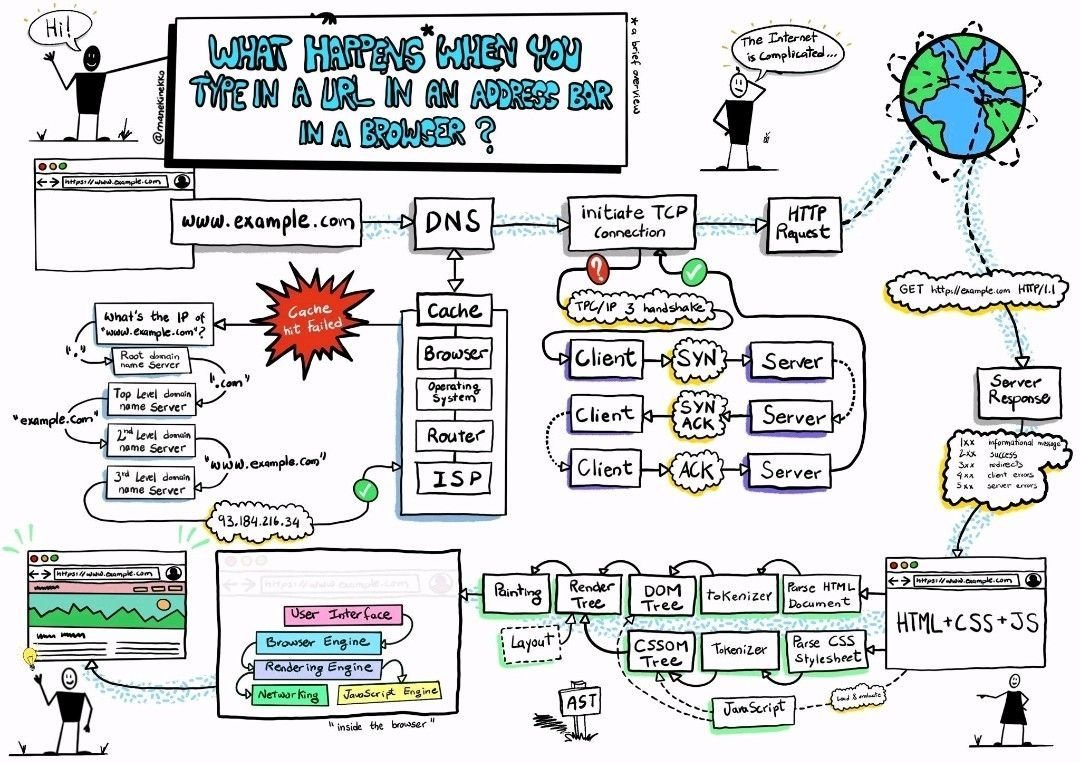 Hi!
WHAT HAPPENS* WHEN YOU
TYPE IN A URL IN AN ADDRESS BAR
IN A BROWSER?
* a brief overview
@manekinekko
The Internet
is Complicated...
https://www.example.com
www.example.com
DNS
initiate TCP
Connection
HTTP
Request
GET http://example.com HTTP/1.1
Server
Response
1xx informational message
2xx success
3xx redirects
4xx client errors
5xx server errors
Cache
Browser
Operating
System
Router
ISP
Cache
hit Failed
What's the IP of
"www.example.com"?
"."
Root domain
name Server
".com"
Top Level domain
name Server
"example.com"
2nd Level domain
name Server
"www.example.com"
3rd Level domain
name Server
93.184.216.34
?
TPC/IP 3 handshake
Client
SYN
Server
Client
SYN
ACK
Server
Client
ACK
Server
https://www.example.com
HTML+CSS+JS
Parse HTML
Document
toKenizer
DOM
Tree
Render
Tree
Painting
Layout
Parse CSS
Stylesheet
Tokenizer
CSSOM
Tree
JavaScript
Load & evaluate
AST
https://www.example.com
User Interface
Browser Engine
Rendering Engine
Networking
JavaScript Engine
"inside the browser"
https://www.example.com